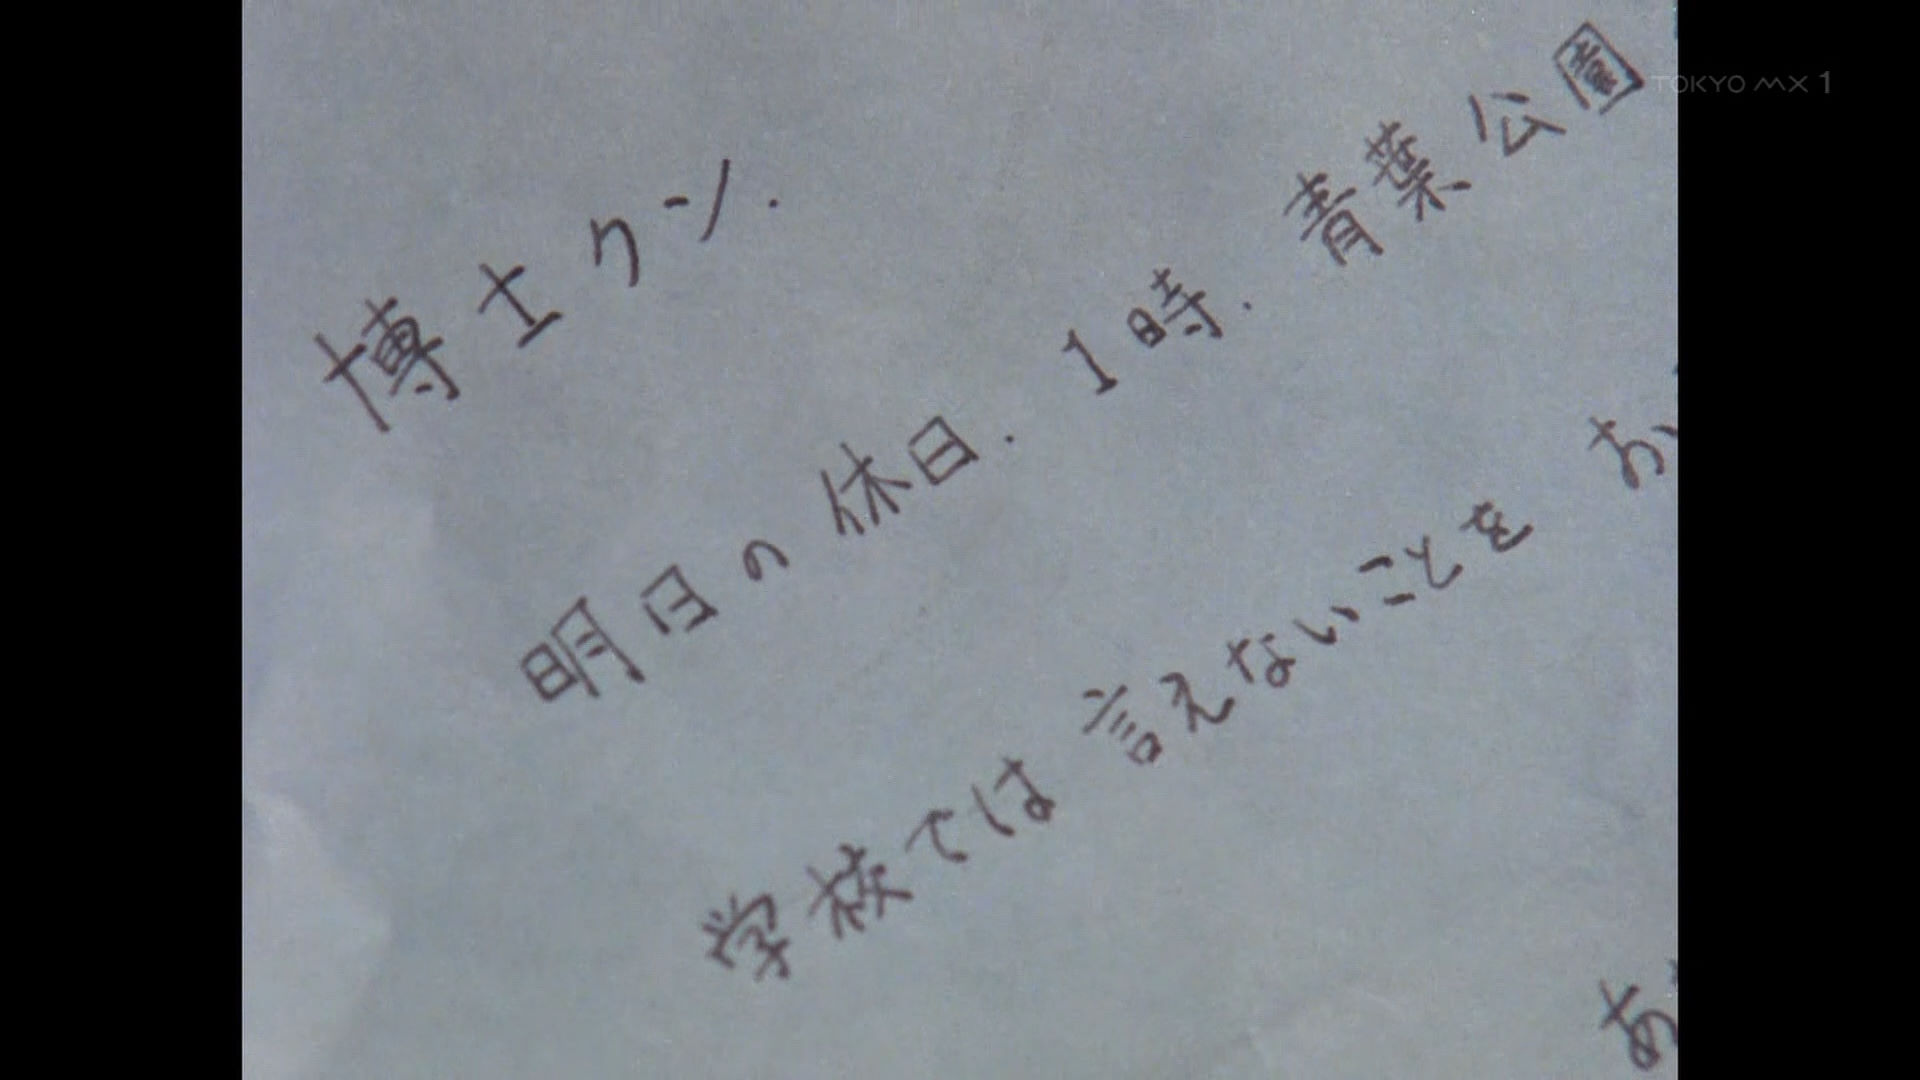 TOKYO MX 1
博士クン.
明日の休日. 1時. 青葉公園
学校では 言えないことを お
あ